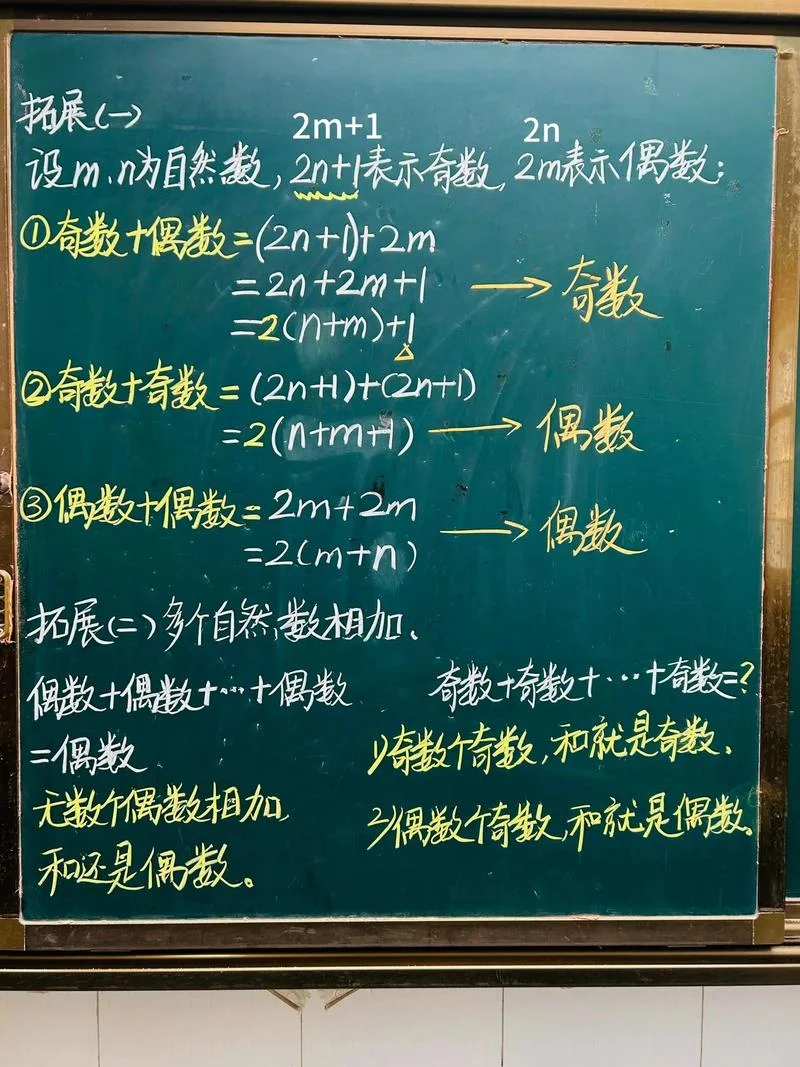 拓展(一)
2m+1 2n
设m、n为自然数,2n+1表示奇数,2m表示偶数:
①奇数+偶数=(2n+1)+2m
=2n+2m+1 → 奇数
=2(n+m)+1
②奇数+奇数=(2n+1)+(2n+1)
=2(n+m+1) → 偶数
③偶数+偶数=2m+2m
=2(m+n) → 偶数
拓展(二)多个自然数相加.
偶数+偶数+…+偶数
=偶数
无数个偶数相加,
和还是偶数。
奇数+奇数+…+奇数=?
1)奇数个奇数,和就是奇数.
2)偶数个奇数,和就是偶数。